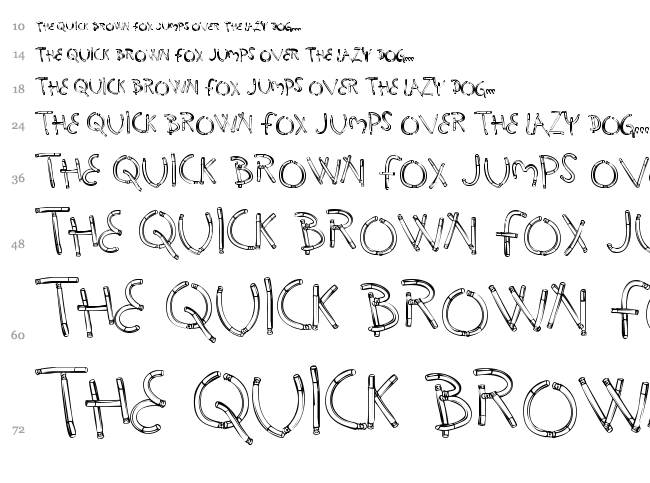 10 THE QUICK BROWN FOX JUMPS OVER THE LAZY DOG...
14 THE QUICK BROWN FOX JUMPS OVER THE LAZY DOG...
18 THE QUICK BROWN FOX JUMPS OVER THE LAZY DOG...
24 THE QUICK BROWN FOX JUMPS OVER THE LAZY DOG...
36 THE QUICK BROWN FOX JUMPS OV
48 THE QUICK BROWN FOX JU
60 THE QUICK BROWN F
72 THE QUICK BROW